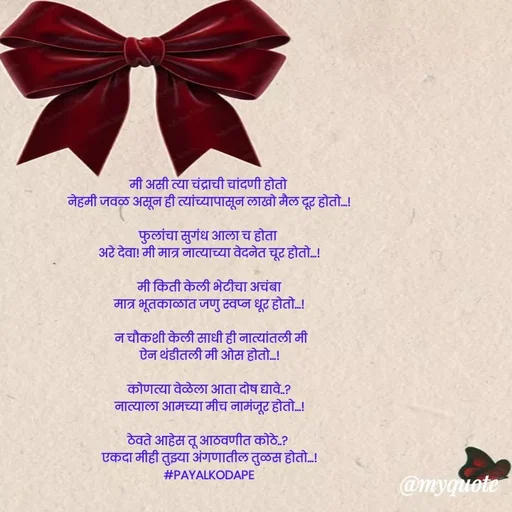 मी असी त्या चंद्राची चांदणी होतो
नेहमी जवळ असून ही त्यांच्यापासून लाखो मैल दूर होतो...!
फुलांचा सुगंध आला च होता
अरे देवा! मी मात्र नात्याच्या वेदनेत चूर होतो...!
मी किती केली भेटीचा अचंबा
मात्र भूतकाळात जणु स्वप्न धूर होतो...!
न चौकशी केली साधी ही नात्यांतली मी
ऐन थंडीतली मी ओस होतो...!
कोणत्या वेळेला आता दोष द्यावे..?
नात्याला आमच्या मीच नामंजूर होतो...!
ठेवते आहेस तू आठवणीत कोठे..?
एकदा मीही तुझ्या अंगणातील तुळस होतो...!
#PAYALKODAPE
@myquote